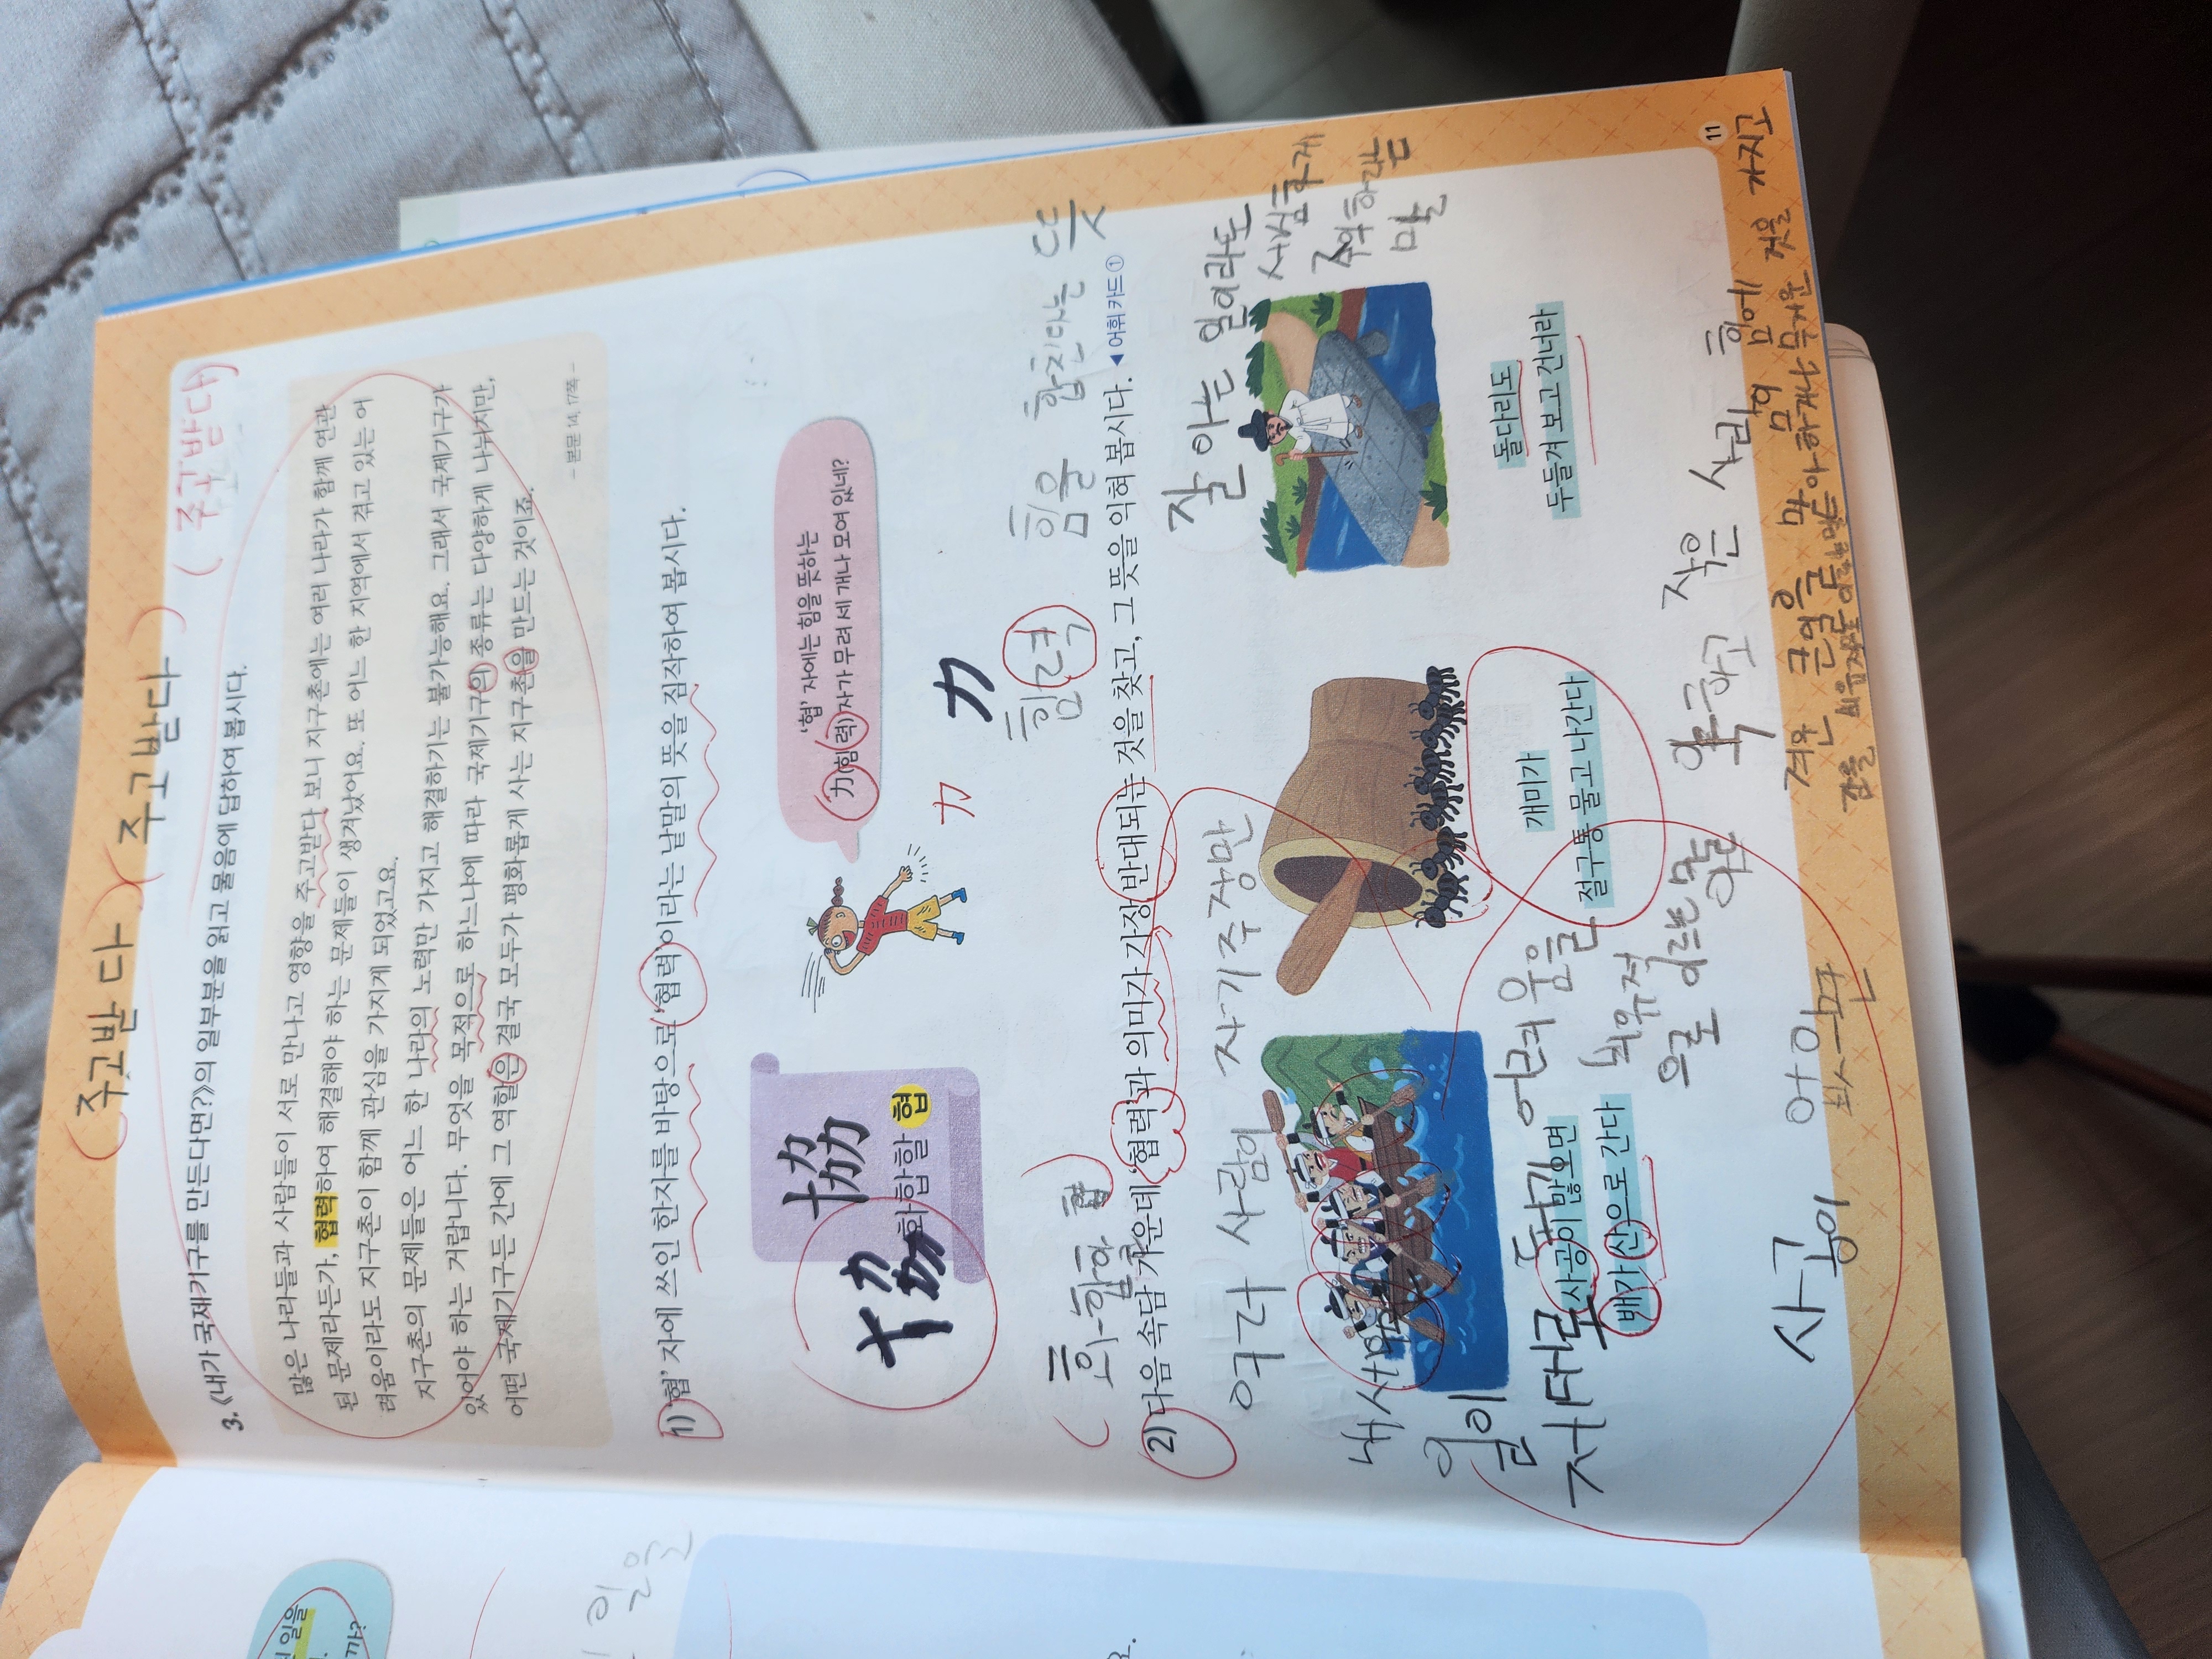 (주고받다)(주고받다)
(주고받다)
3. 《내가 국제기구를 만든다면?》의 일부분을 읽고 물음에 답하여 봅시다.
많은 나라들과 사람들이 서로 만나고 영향을 주고받다 보니 지구촌에는 여러 나라가 함께 연관
된 문제라든가, 협력하여 해결해야 하는 문제들이 생겨났어요. 또 어느 한 지역에서 겪고 있는 어
려움이라도 지구촌이 함께 관심을 가지게 되었고요.
지구촌의 문제들은 어느 한 나라의 노력만 가지고 해결하기는 불가능해요. 그래서 국제기구가
있어야 하는 거랍니다. 무엇을 목적으로 하느냐에 따라 국제기구의 종류는 다양하게 나뉘지만,
어떤 국제기구든 간에 그 역할은 결국 모두가 평화롭게 사는 지구촌을 만드는 것이죠.
- 본문 14, 17쪽 -
1) '협' 자에 쓰인 한자를 바탕으로 '협력'이라는 낱말의 뜻을 짐작하여 봅시다.
協
화합할 협
'협' 자에는 힘을 뜻하는
力(힘 력) 자가 무려 세 개나 모여 있네?
力
力
힘 력
힘을 합친다는 뜻
(화합할 협)
2) 다음 속담 가운데 '협력'과 의미가 가장 반대되는 것을 찾고, 그 뜻을 익혀 봅시다. ◀ 어휘 카드 ①
여러 사람이 자기 주장만
내세우면
일이
제대로 되기 어려움을
비유적
으로 이르는 말
사공이 많으면
배가 산으로 간다
개미가
절구통 물고 나간다
잘 아는 일이라도
세심하게
주의하라는
말
돌다리도
두들겨 보고 건너라
약하고 작은 사람이 힘에
겨운 큰일을 맡아 하거나 무거운 것을 가지고
감을 비유적으로 이르는 말
사공이
11
일을